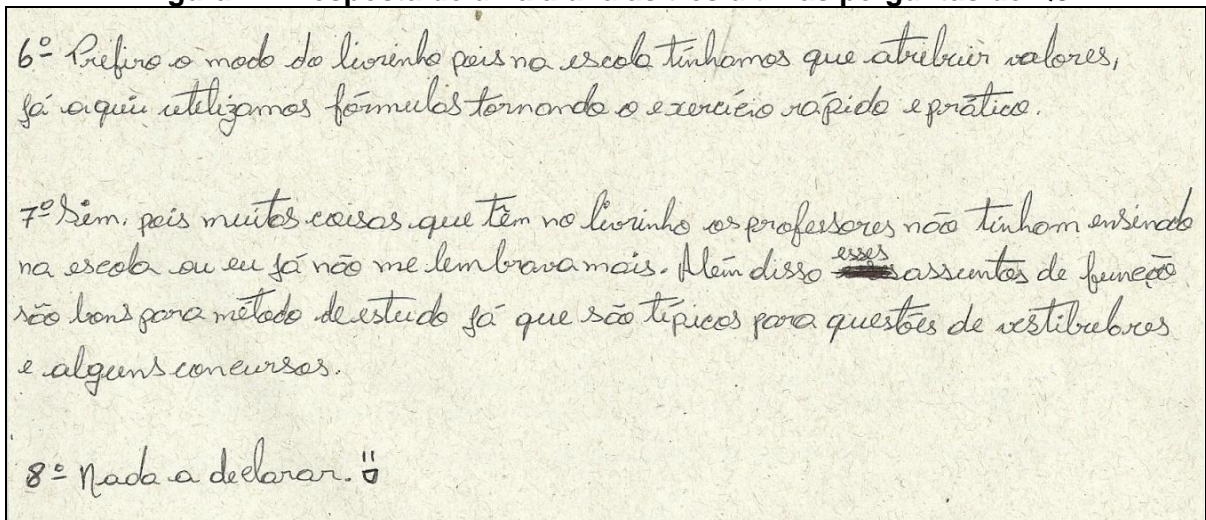 6º Prefiro o modo do livrinho pois na escola tínhamos que atribuir valores,
já aqui utilizamos fórmulas tornando o exercício rápido e prático.
7º Sim, pois muitas coisas que têm no livrinho os professores não tinham ensinado
na escola ou eu já não me lembrava mais. Além disso esses assuntos de função
são bons para método de estudo já que são típicos para questões de vestibulares
e alguns concursos.
8º Nada a declarar.